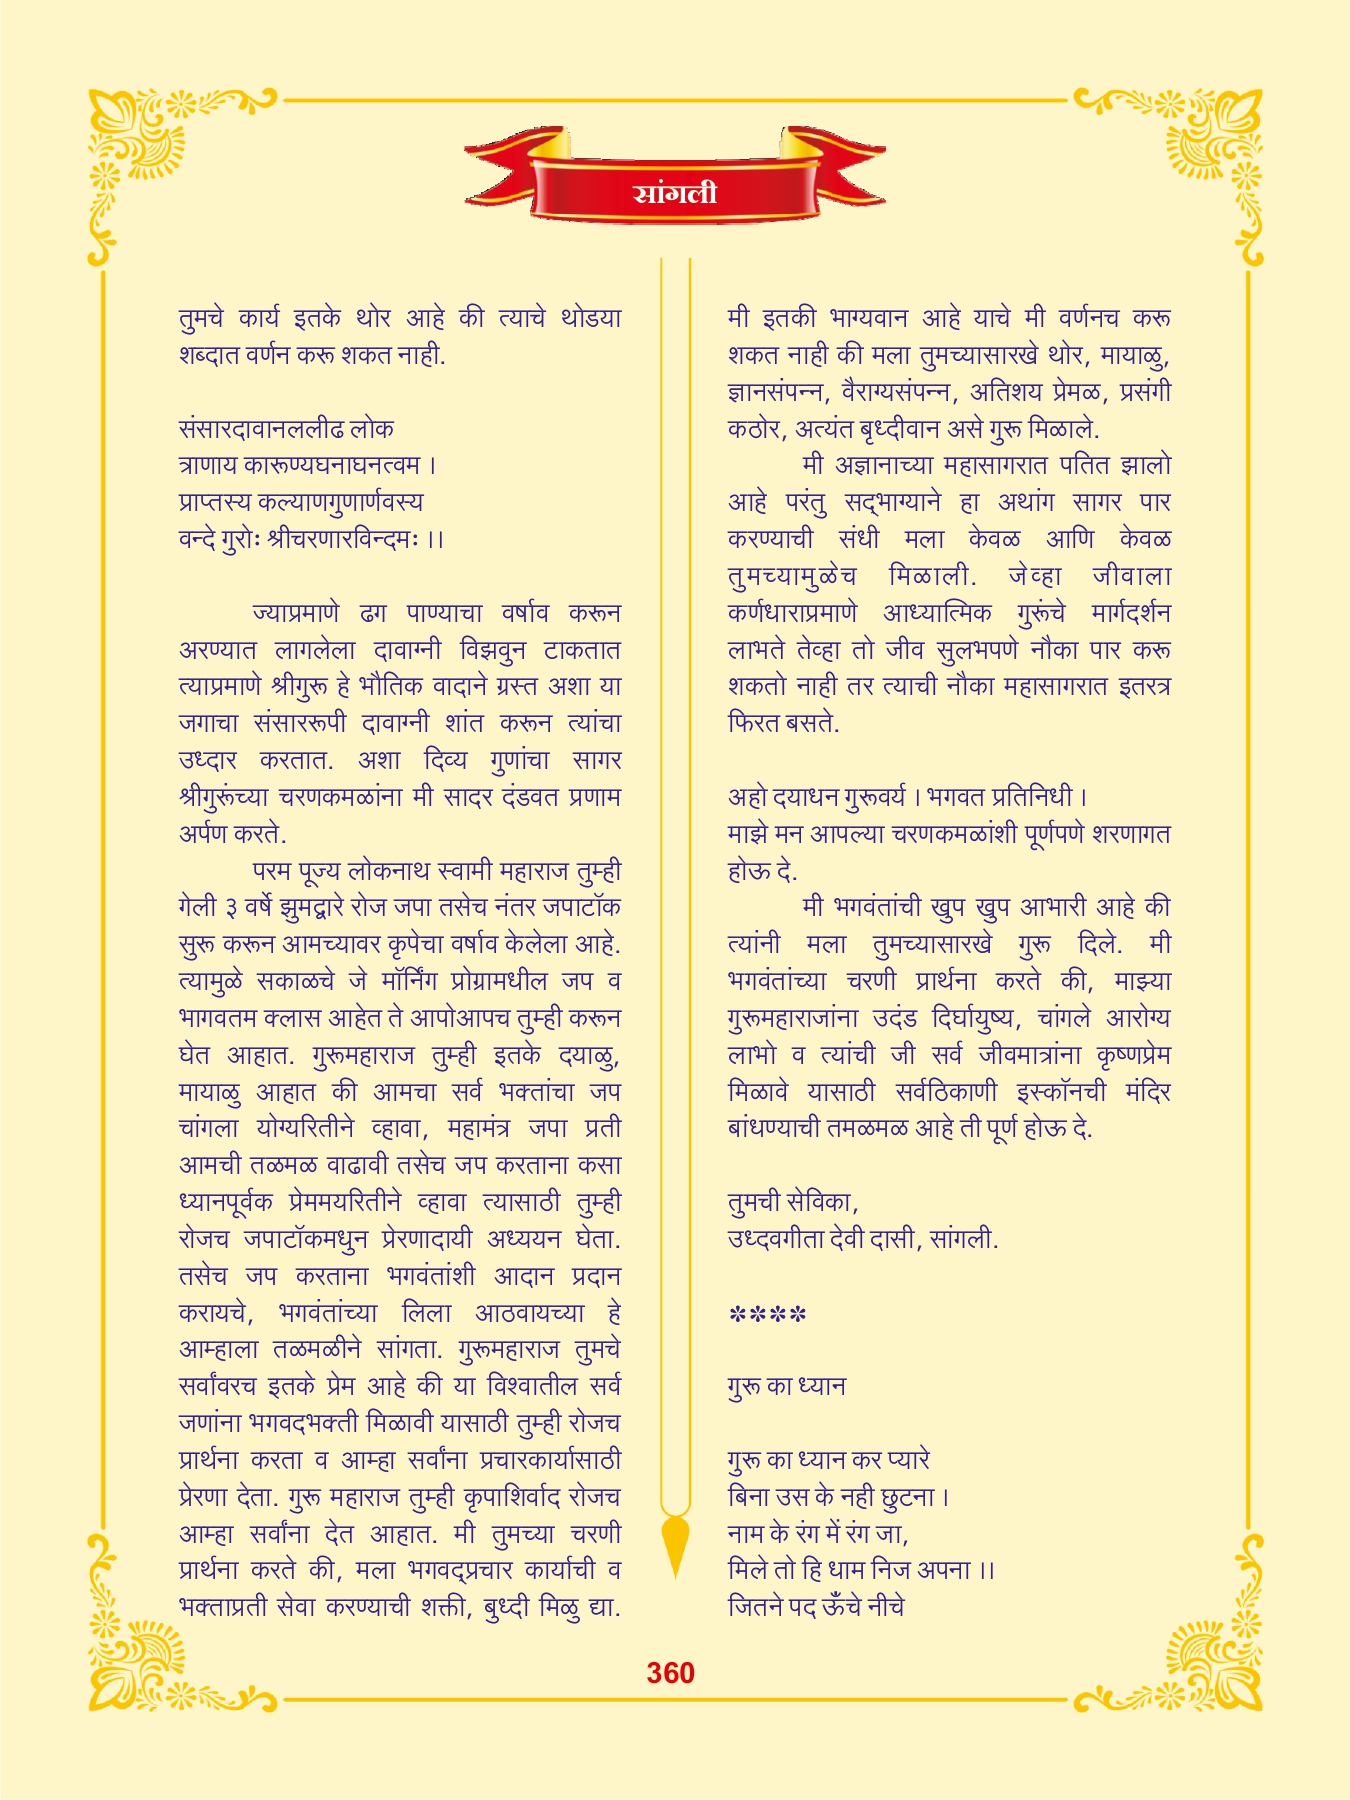 सांगली
तुमचे कार्य इतके थोर आहे की त्याचे थोडया
शब्दात वर्णन करू शकत नाही.
संसारदावानललीढ लोक
त्राणाय कारूण्यघनाघनत्वम ।
प्राप्तस्य कल्याणगुणार्णवस्य
वन्दे गुरोः श्रीचरणारविन्दमः ।।
ज्याप्रमाणे ढग पाण्याचा वर्षाव करून
अरण्यात लागलेला दावाग्नी विझवुन टाकतात
त्याप्रमाणे श्रीगुरू हे भौतिक वादाने ग्रस्त अशा या
जगाचा संसाररूपी दावाग्नी शांत करून त्यांचा
उध्दार करतात. अशा दिव्य गुणांचा सागर
श्रीगुरूंच्या चरणकमळांना मी सादर दंडवत प्रणाम
अर्पण करते.
परम पूज्य लोकनाथ स्वामी महाराज तुम्ही
गेली ३ वर्षे झुमद्वारे रोज जपा तसेच नंतर जपाटॉक
सुरू करून आमच्यावर कृपेचा वर्षाव केलेला आहे.
त्यामुळे सकाळचे जे मॉर्निंग प्रोग्रामधील जप व
भागवतम क्लास आहेत ते आपोआपच तुम्ही करून
घेत आहात. गुरूमहाराज तुम्ही इतके दयाळु,
मायाळु आहात की आमचा सर्व भक्तांचा जप
चांगला योग्यरितीने व्हावा, महामंत्र जपा प्रती
आमची तळमळ वाढावी तसेच जप करताना कसा
ध्यानपूर्वक प्रेममयरितीने व्हावा त्यासाठी तुम्ही
रोजच जपाटॉकमधुन प्रेरणादायी अध्ययन घेता.
तसेच जप करताना भगवंतांशी आदान प्रदान
करायचे, भगवंतांच्या लिला आठवायच्या हे
आम्हाला तळमळीने सांगता. गुरूमहाराज तुमचे
सर्वांवरच इतके प्रेम आहे की या विश्वातील सर्व
जणांना भगवदभक्ती मिळावी यासाठी तुम्ही रोजच
प्रार्थना करता व आम्हा सर्वांना प्रचारकार्यासाठी
प्रेरणा देता. गुरू महाराज तुम्ही कृपाशिर्वाद रोजच
आम्हा सर्वांना देत आहात. मी तुमच्या चरणी
प्रार्थना करते की, मला भगवद्प्रचार कार्याची व
भक्ताप्रती सेवा करण्याची शक्ती, बुध्दी मिळु द्या.
मी इतकी भाग्यवान आहे याचे मी वर्णनच करू
शकत नाही की मला तुमच्यासारखे थोर, मायाळु,
ज्ञानसंपन्न, वैराग्यसंपन्न, अतिशय प्रेमळ, प्रसंगी
कठोर, अत्यंत बृध्दीवान असे गुरू मिळाले.
मी अज्ञानाच्या महासागरात पतित झालो
आहे परंतु सद्भाग्याने हा अथांग सागर पार
करण्याची संधी मला केवळ आणि केवळ
तुमच्यामुळेच मिळाली. जेव्हा जीवाला
कर्णधाराप्रमाणे आध्यात्मिक गुरूंचे मार्गदर्शन
लाभते तेव्हा तो जीव सुलभपणे नौका पार करू
शकतो नाही तर त्याची नौका महासागरात इतरत्र
फिरत बसते.
अहो दयाधन गुरूवर्य । भगवत प्रतिनिधी ।
माझे मन आपल्या चरणकमळांशी पूर्णपणे शरणागत
होऊ दे.
मी भगवंतांची खुप खुप आभारी आहे की
त्यांनी मला तुमच्यासारखे गुरू दिले. मी
भगवंतांच्या चरणी प्रार्थना करते की, माझ्या
गुरूमहाराजांना उदंड दिर्घायुष्य, चांगले आरोग्य
लाभो व त्यांची जी सर्व जीवमात्रांना कृष्णप्रेम
मिळावे यासाठी सर्वठिकाणी इस्कॉनची मंदिर
बांधण्याची तमळमळ आहे ती पूर्ण होऊ दे.
तुमची सेविका,
उध्दवगीता देवी दासी, सांगली.
****
गुरू का ध्यान
गुरू का ध्यान कर प्यारे
बिना उस के नही छुटना ।
नाम के रंग में रंग जा,
मिले तो हि धाम निज अपना ।।
जितने पद ऊँचे नीचे
360